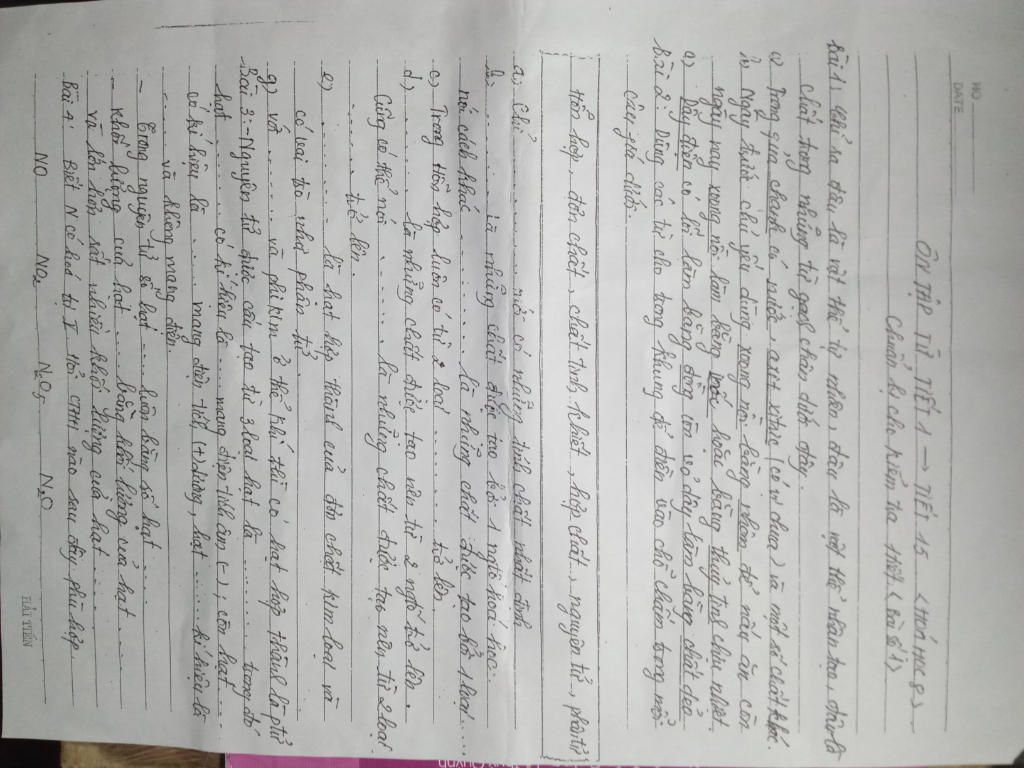 NO
DATE
ÔN TẬP TỪ TIẾT 1 → TIẾT 15 (HOÁ HỌC 8)
Chuẩn bị cho kiểm tra 1 tiết (Bài số 1)
Bài 1: Chỉ ra đâu là vật thể tự nhiên, đâu là vật thể nhân tạo, đâu là
chất trong những từ gạch chân dưới đây.
a) Trong quả chanh có nước, axit xitric (có vị chua) và một số chất khác.
b) Ngày trước chủ yếu dùng xoong nồi bằng nhôm để nấu ăn còn
ngày nay xoong nồi làm bằng inox hoặc bằng thuỷ tinh chịu nhiệt.
c) Dây điện có lõi làm bằng đồng còn vỏ dây làm bằng chất dẻo
Bài 2: Dùng các từ cho trong khung để điền vào chỗ chấm trong mỗi
câu sau đây:
hỗn hợp, đơn chất, chất tinh khiết, hợp chất, nguyên tử, phân tử
a. Chỉ ........... mới có những tính chất nhất định
b. ........... là những chất được tạo bởi 1 ngtố hoá học.
nói cách khác ........... là những chất được tạo bởi 1 loại ....
c) Trong hỗn hợp luôn có từ 2 loại ........... trở lên.
d) ........... là những chất được tạo nên từ 2 ngtố trở lên.
Cũng có thể nói ........... là những chất được tạo nên từ 2 loại
........... trở lên.
e) ........... là hạt hợp thành của đơn chất kim loại và
có vai trò như phân tử.
g) Với ........... và phi kim ở thể khí thì có hạt hợp thành là ptử
Bài 3: - Nguyên tử được cấu tạo từ 3 loại hạt là ........... trong đó
hạt ........ có kí hiệu là .... mang điện tích âm (-), còn hạt ....
có kí hiệu là ...... mang điện tích (+) dương, hạt ........ kí hiệu là
........ và không mang điện.
- Trong nguyên tử số hạt ...... luôn bằng số hạt ......
- Khối lượng của hạt ...... bằng khối lượng của hạt ......
và lớn hơn rất nhiều khối lượng của hạt ......
Bài 4: Biết N có hoá trị V. Hỏi CTHH nào sau đây phù hợp
NO NO₂ N₂O₅ N₂O
HẢI TIẾN